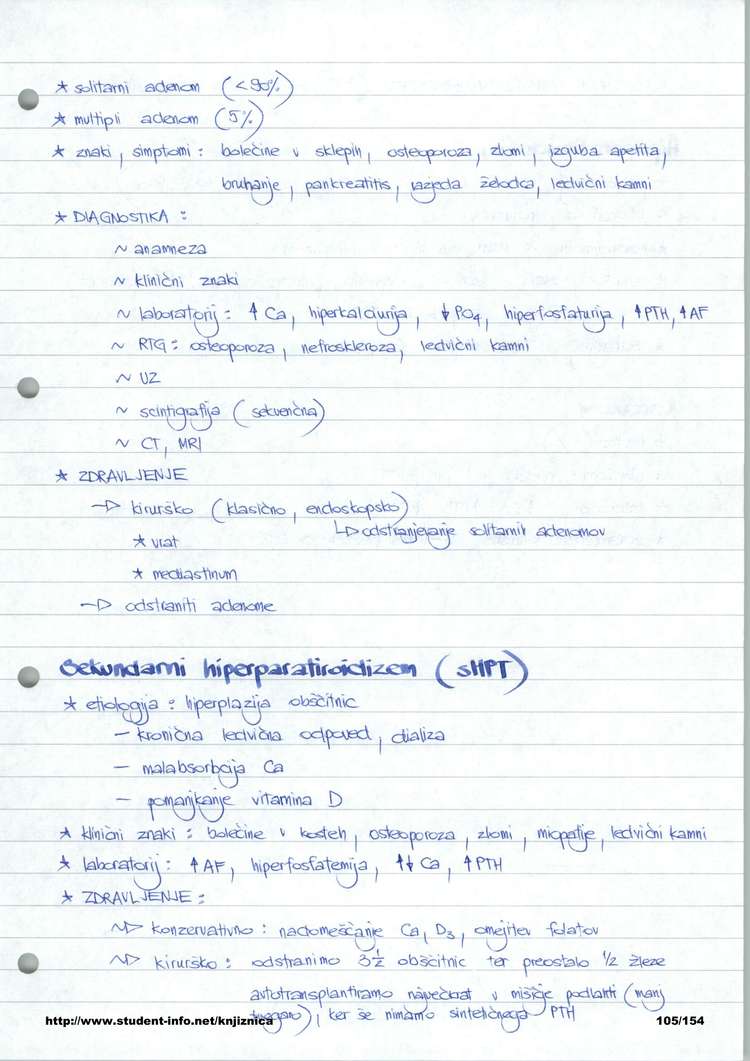 * solitarni adenom (<90%)
* multipli adenom (5%)
* znaki, simptomi: bolečine v sklepih, osteoporoza, zlomi, izguba apetita,
bruhanje, pankreatitis, razjeda želodca, ledvični kamni
* DIAGNOSTIKA:
~ anamneza
~ klinični znaki
~ laboratorij: ↑ Ca, hiperkalciurija, ↓ PO4, hiperfosfaturija, ↑PTH, ↑AF
~ RTG: osteoporoza, nefroskleroza, ledvični kamni
~ UZ
~ scintigrafija (sekvenčna)
~ CT, MRI
* ZDRAVLJENJE
→ kirurško (klasično, endoskopsko)
↳ odstranjevanje solitarnih adenomov
* vrat
* mediastinum
→ odstraniti adenome
Sekundarni hiperparatiroidizem (sHPT)
* etiologija: hiperplazija obščitnic
- kronična ledvična odpoved, dializa
- malabsorbcija Ca
- pomanjkanje vitamina D
* klinični znaki: bolečine v kosteh, osteoporoza, zlomi, miopatije, ledvični kamni
* laboratorij: ↑AF, hiperfosfatemija, ↑↓ Ca, ↑PTH
* ZDRAVLJENJE:
~> konzervativno: nadomeščanje Ca, D3, omejitev folatov
~> kirurško: odstranimo 3½ obščitnic ter preostalo 1/2 žleze
avtotransplantiramo največkrat v mišičje podlakti (manj
tvegano), ker še nimamo sintetičnega PTH
http://www.student-info.net/knjiznica
105/154